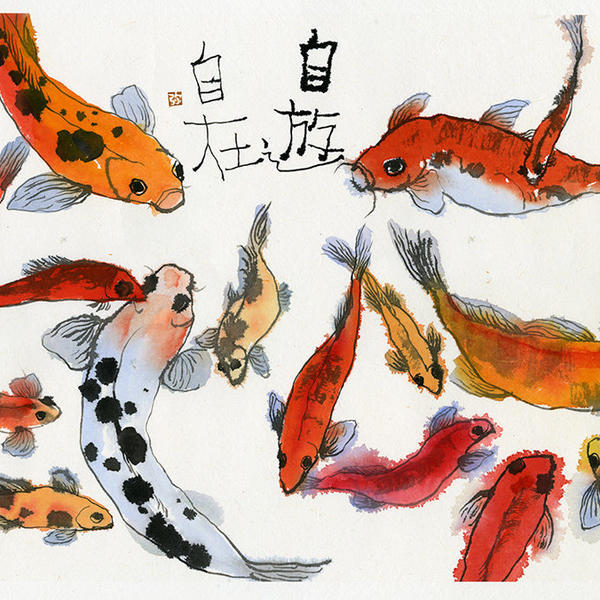 自遊
自在